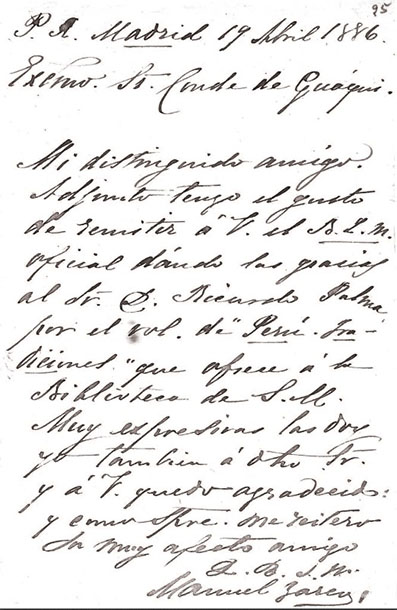 95
P. A. Madrid 19 Abril 1886.
Excmo. Sr. Conde de Guaqui.
Mi distinguido amigo.
Adjunto tengo el gusto
de remitir á V. el B. L. M.
oficial dándo las gracias
al Sr. D. Ricardo Palma
por el vol. de "Perú. Tra-
diciones" que ofrece á la
Biblioteca de S. M.
Muy expresivas las doy
yo tambien á dho Sr.
y á V. quedo agradecido:
y como spre. me reitero
su muy afecto amigo
Q. B. S. M.
Manuel Zarco